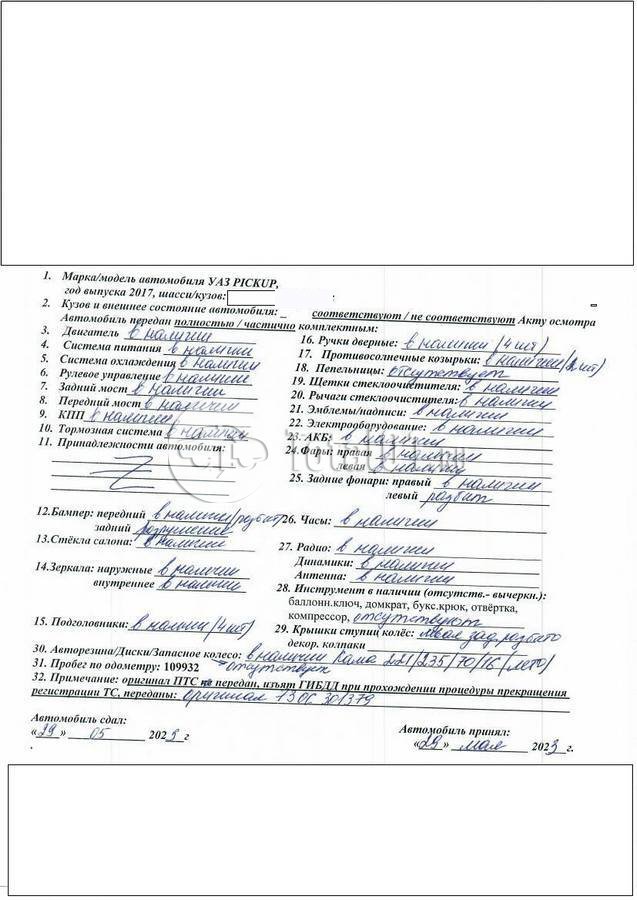 1. Марка/модель автомобиля УАЗ PICKUP,
год выпуска 2017, шасси/кузов:
2. Кузов и внешнее состояние автомобиля: _ соответствуют / не соответствуют Акту осмотра
Автомобиль передан полностью / частично комплектным:
3. Двигатель в наличии
4. Система питания в наличии
5. Система охлаждения в наличии
6. Рулевое управление в наличии
7. Задний мост в наличии
8. Передний мост в наличии
9. КПП в наличии
10. Тормозная система в наличии
11. Принадлежности автомобиля:
12.Бампер: передний в наличии/разбит
задний разрушение
13.Стёкла салона: в наличии
14.Зеркала: наружные в наличии
внутреннее в наличии
15. Подголовники: в наличии (4шт)
16. Ручки дверные: в наличии (4 шт)
17. Противосолнечные козырьки: в наличии (2 шт)
18. Пепельницы: отсутствует
19. Щетки стеклоочистителя: в наличии
20. Рычаги стеклоочистителя: в наличии
21. Эмблемы/надписи: в наличии
22. Электрооборудование: в наличии
23. АКБ: в наличии
24.Фары: правая в наличии
левая в наличии
25. Задние фонари: правый в наличии
левый разбит
26. Часы: в наличии
27. Радио: в наличии
Динамики: в наличии
Антенна: в наличии
28. Инструмент в наличии (отсутств.- вычеркн.):
баллонн.ключ, домкрат, букс.крюк, отвёртка,
компрессор, отсутствуют
29. Крышки ступиц колёс: левая зад. разбита
декор. колпаки
30. Авторезина/Диски/Запасное колесо: в наличии Кама 221/235/70/16 (лето)
31. Пробег по одометру: 109932 отсутствует
32. Примечание: оригинал ПТС передан, изъят ГИБДД при прохождении процедуры прекращения
регистрации ТС, переданы: оригинал 13 ОС 301379
Автомобиль сдал:
«29» 05 2023 г
Автомобиль принял:
«29» мая 2023 г.